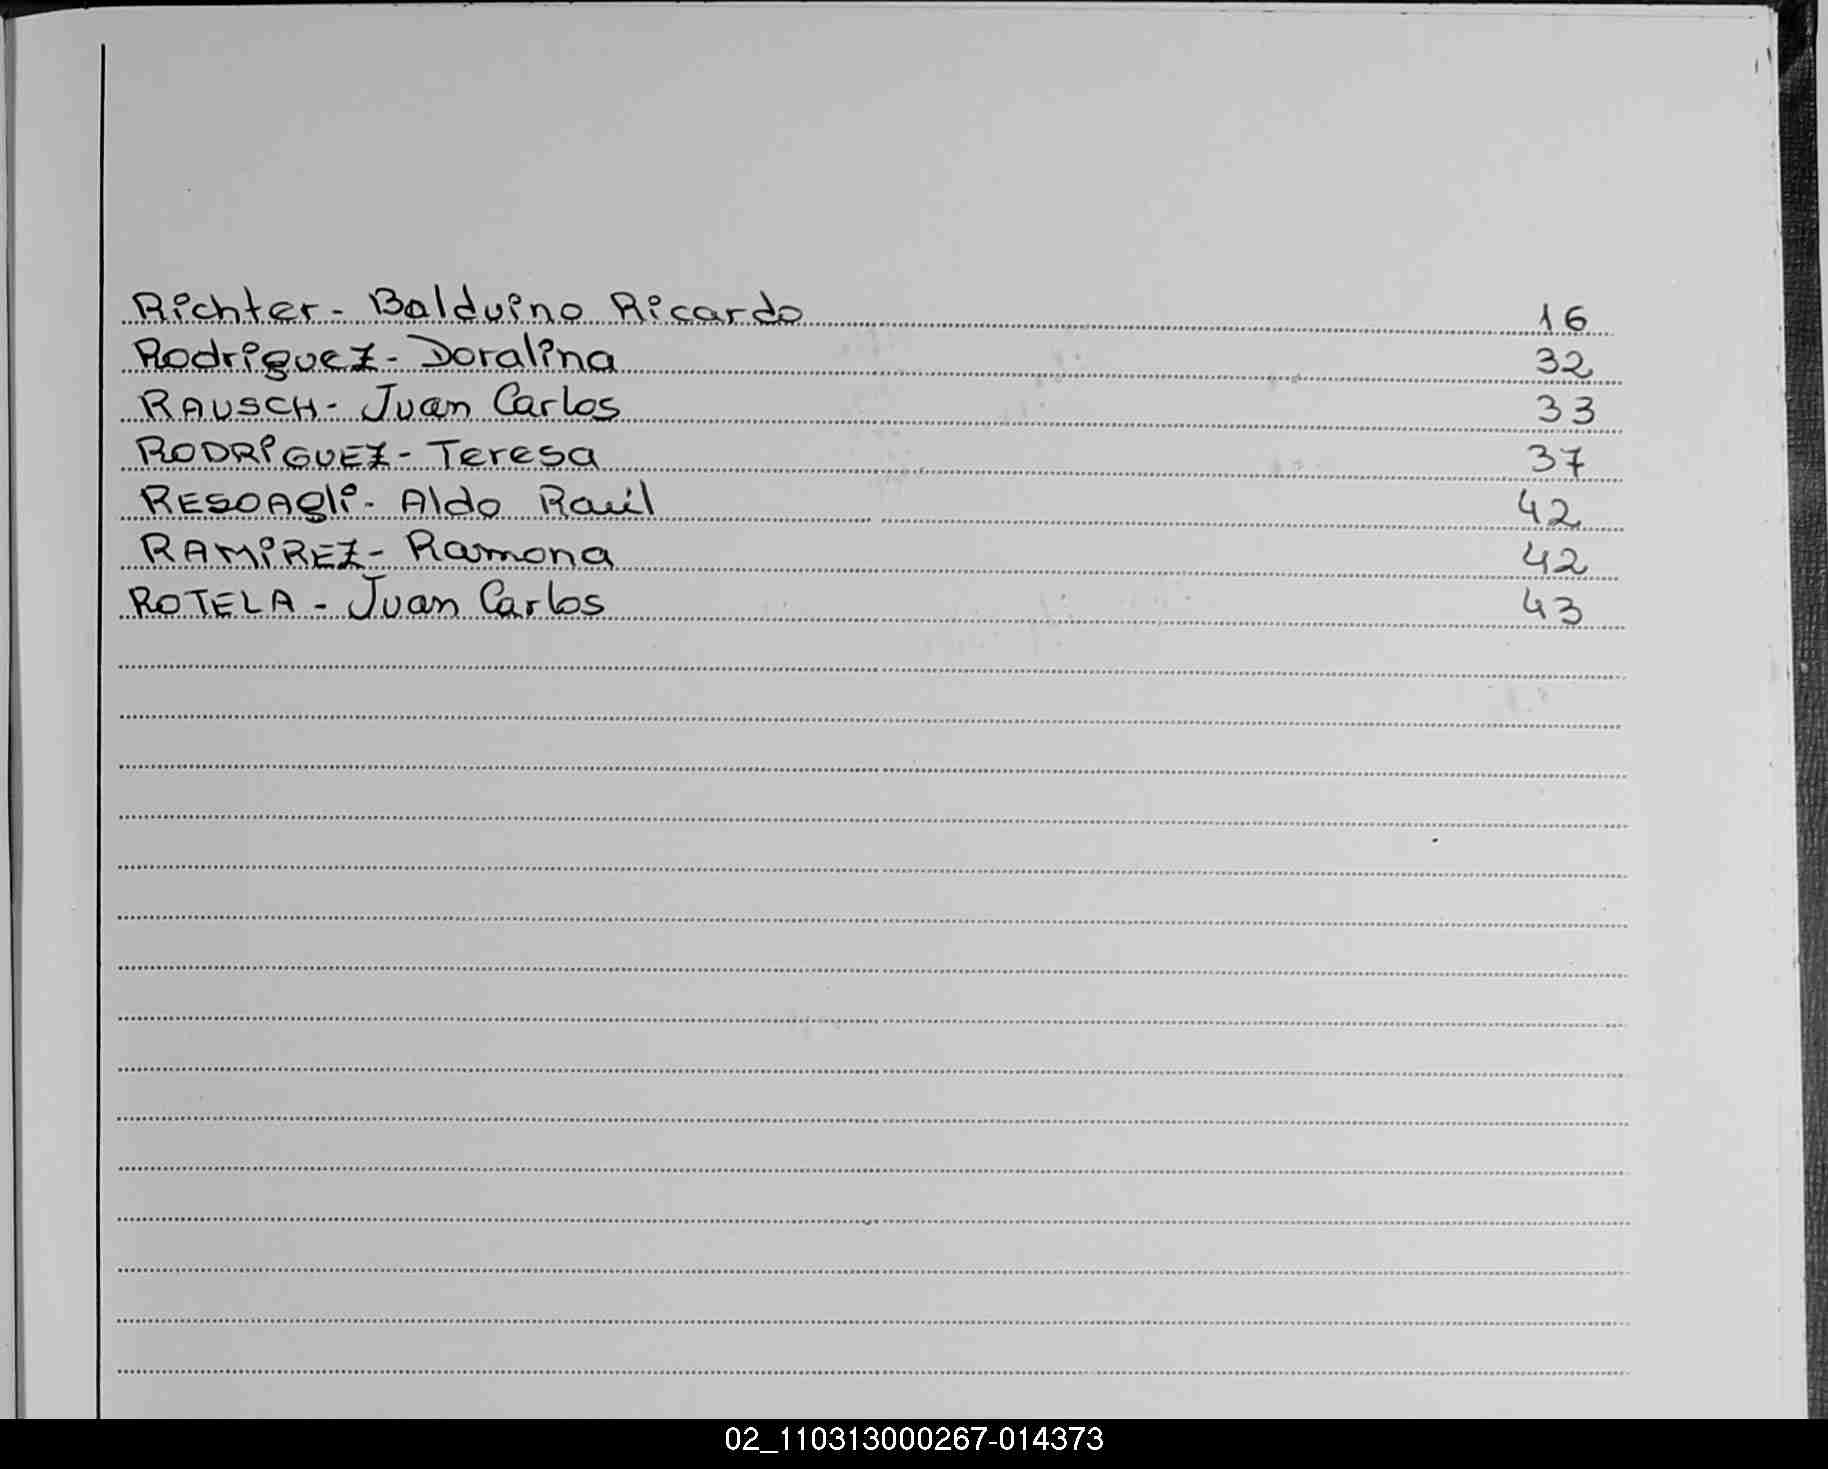 Richter - Balduino Ricardo 16
Rodriguez - Doralina 32
RAUSCH - Juan Carlos 33
RODRIGUEZ - Teresa 37
RESOAgli - Aldo Raúl 42
RAMIREZ - Ramona 42
ROTELA - Juan Carlos 43
02_110313000267-014373